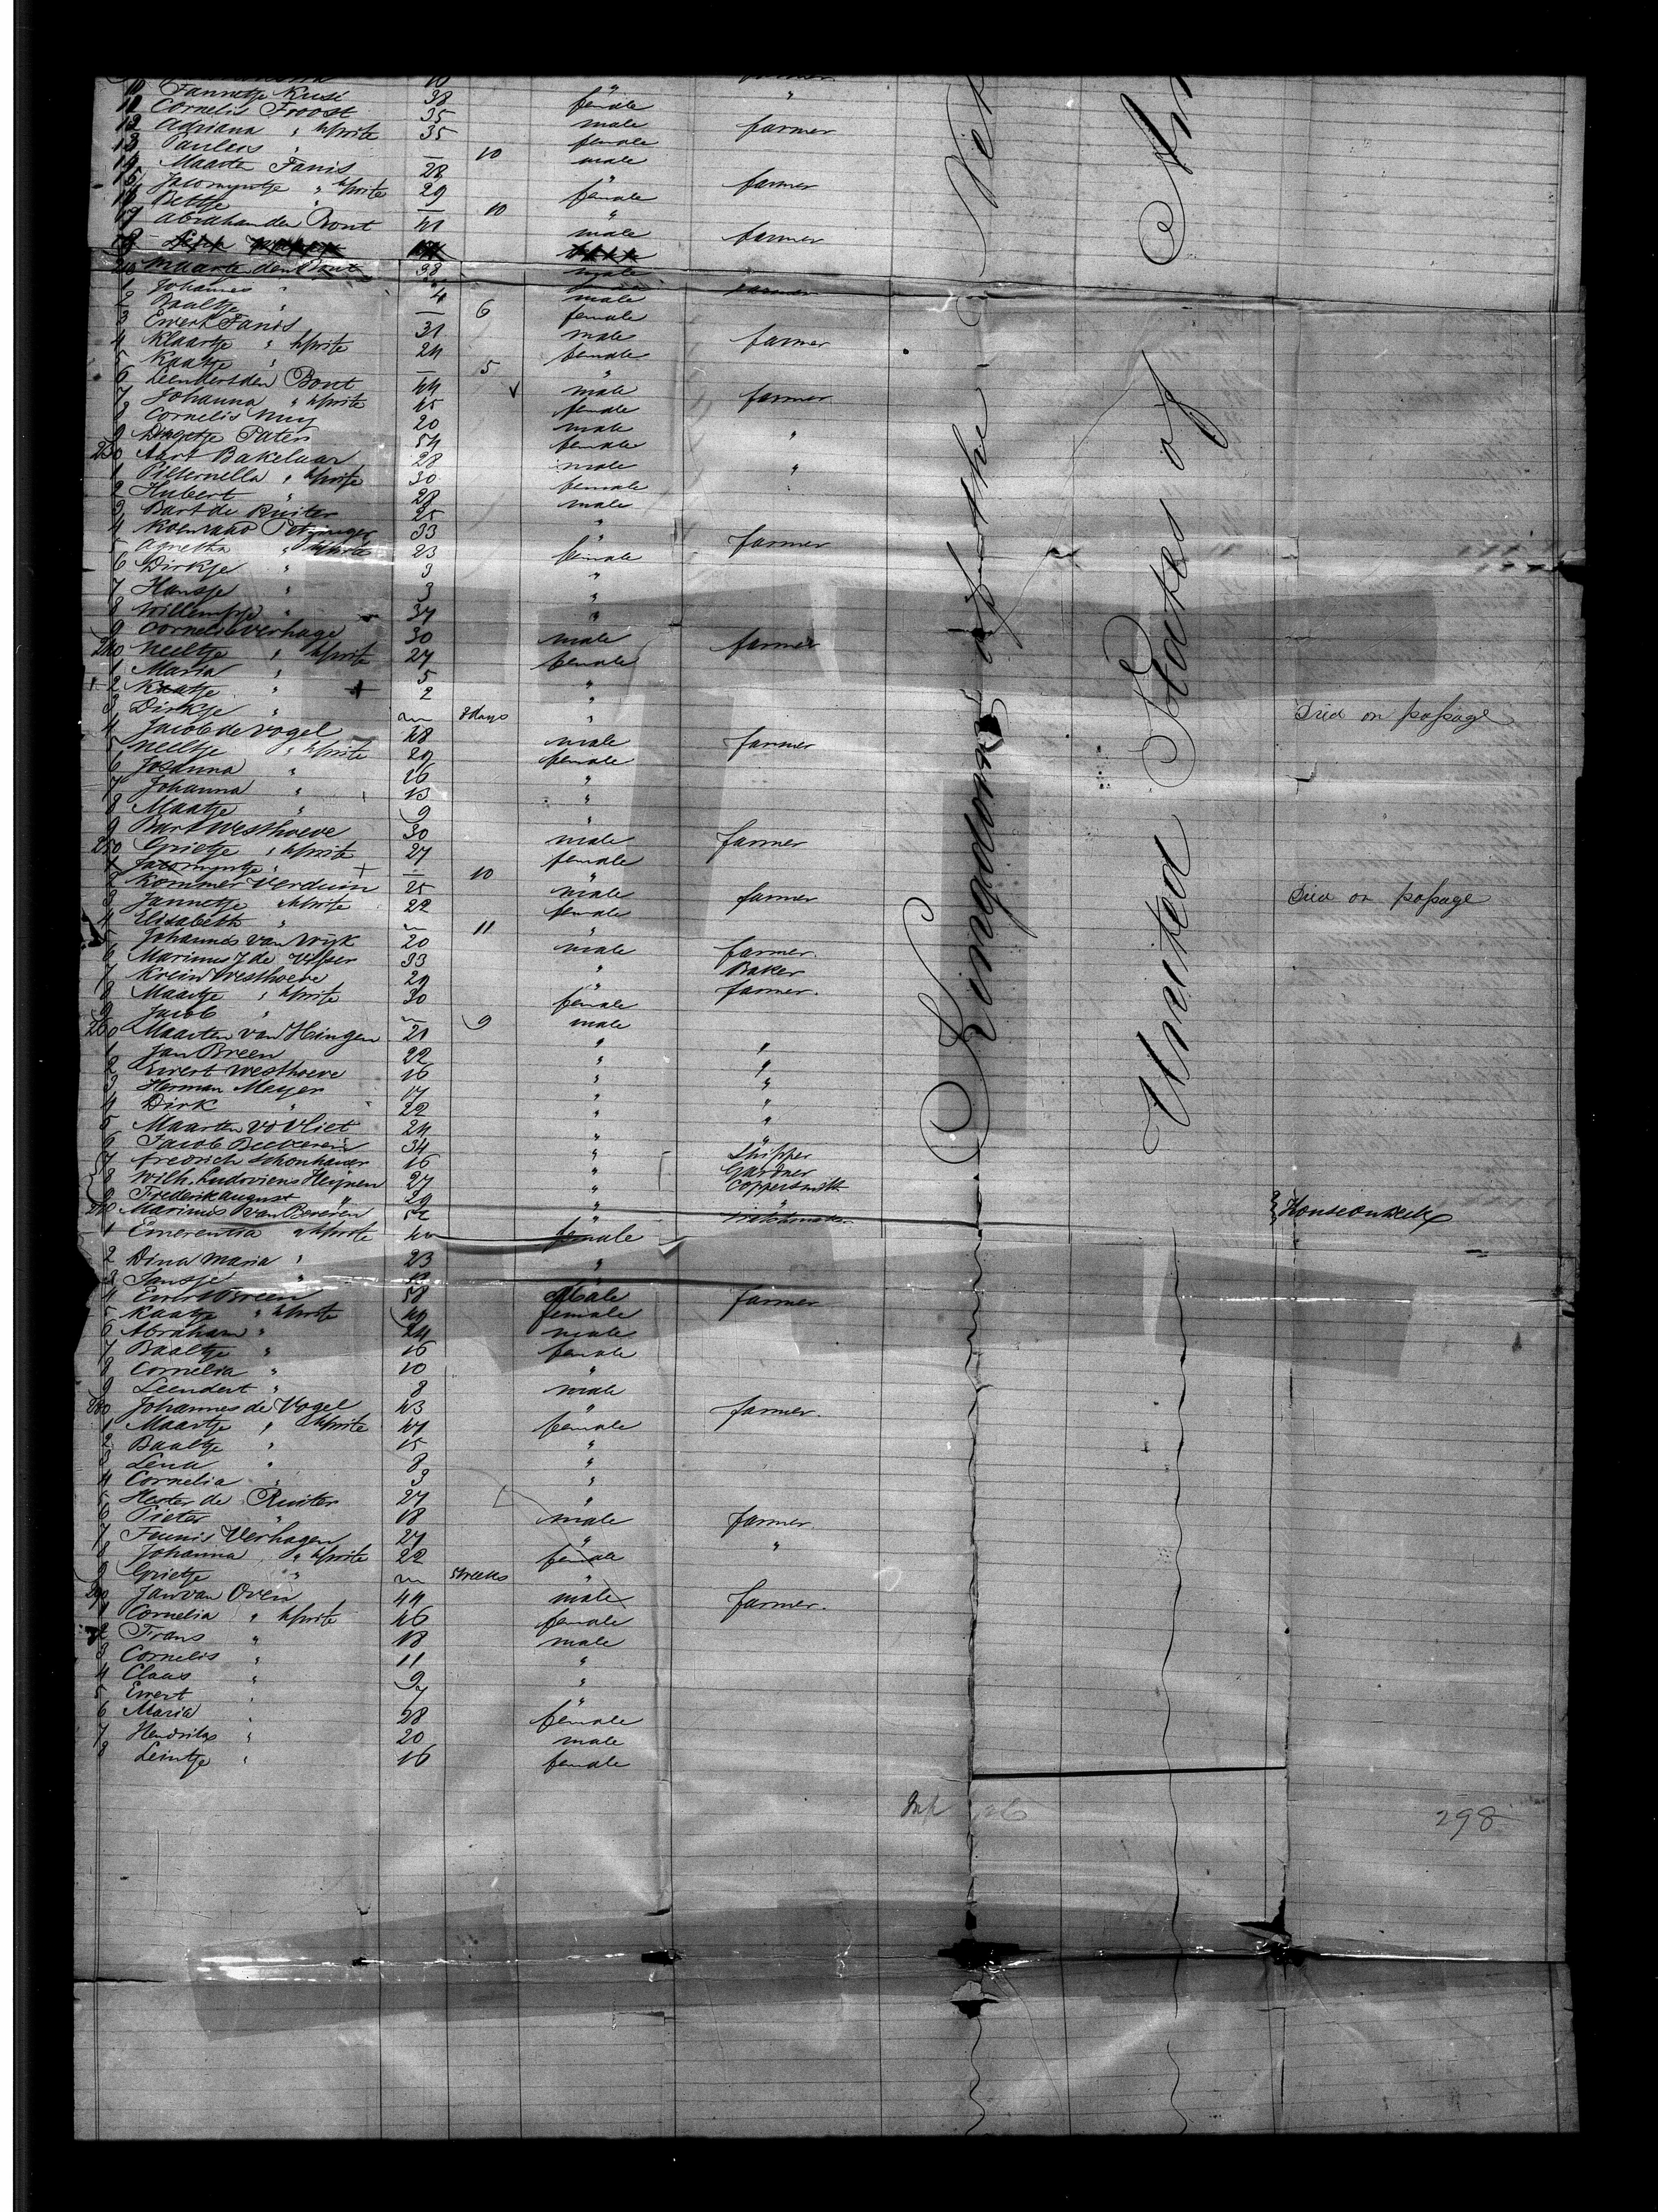 10 Jannetje Kusé 38 female "
11 Cornelis Troost 35 male farmer
12 Adriana " hswite 35 female
13 Paulus " — 10 male
14 Maarten Fanis 28 " farmer
15 Jacomyntje " hswite 29 female
16 Betje " — 10 "
17 Abraham den Bont 41 male farmer
18
Maarte den Bont 38 male
1 Johannes " 4 male
2 Baaltje " — 6 female
3 Ewert Fanis 31 male farmer
4 Klaartje " hswite 24 female
5 Kaatje " — 5 "
6 Leendert den Bont 44 male farmer
7 Johanna " hswite 45 female
8 Cornelis Muy 20 male
9 Dingetje Paters 54 female "
230 Aart Bakelaar 28 male "
1 Pitternella " hswite 30 female
2 Hubert " 28 male
3 Bart de Ruiter 25 "
4 Koenraad 33 " farmer
5 Agnetha " hswite 23 female
6 Dirkje " 3 "
7 Hansje " 3 "
8 Willempje " 34 "
9 Cornelis Verhage 30 male farmer
240 Neeltje " hswite 27 female
1 Maria " 5 "
2 Kaatje " 2 "
3 Dirkje " 8 days " Died on passage
4 Jacob de Vogel 48 male farmer
5 Neeltje " hswite 29 female
6 Josanna " 16 "
7 Johanna " 13 "
8 Maatje " 9 "
9 Bart Westhoeve 30 male farmer
250 Grietje " hswite 27 female
1 Jacomyntje " — 10 "
2 Kommer Verduin 25 male farmer Died on passage
3 Jannetje hswite 22 female
4 Elisabeth " 11 "
5 Johannes van Wyk 20 male farmer
6 Marinus J de Visser 33 " Baker
7 Krein Westhoeve 29 " farmer
8 Maartje " hswite 30 female
9 Jacob " 9 male
260 Maarten van Hengen 21 " "
1 Jan Breen 22 " "
2 Ewert Westhoeve 16 " "
3 Herman Meyer 17 " "
4 Dirk " 22 " "
5 Maarten v d Vliet 24 " "
6 Jacob 34 " Shipper
7 Fredrich Schonhauer 16 " Gardner
8 Wilh. Ludovicus Heijnen 27 " Coppersmith
9 Frederik August " 29 " "
270 Marinus van Beveren 52 " Watchmaker House on deck
1 Emerentia hswite female
2 Dina Maria " 23 "
3 Jansje " "
4 Ewert Breen 58 Male farmer
5 Kaatje " hswite 49 female
6 Abraham " 24 male
7 Baaltje " 16 female
8 Cornelia " 10 "
9 Leendert " 8 male
280 Johannes de Vogel 43 " farmer.
1 Maartje " hswite 47 female
2 Baaltje " 15 "
3 Lena " 8 "
4 Cornelia " 3 "
5 Hester de Ruiter 27 "
6 Pieter " 18 male farmer
7 Teunis Verhagen 27 " "
8 Johanna " hswite 22 female
9 Grietje " 5 weeks "
290 Jan van Oven 49 male farmer.
1 Cornelia " hswite 46 female
2 Frans " 18 male
3 Cornelis " 11 "
4 Claas " 9 "
5 Ewert " 7 "
6 Maria " 28 female
7 Hendrikx " 20 male
8 Leintje " 16 female
Kingdom of the
United States of
298